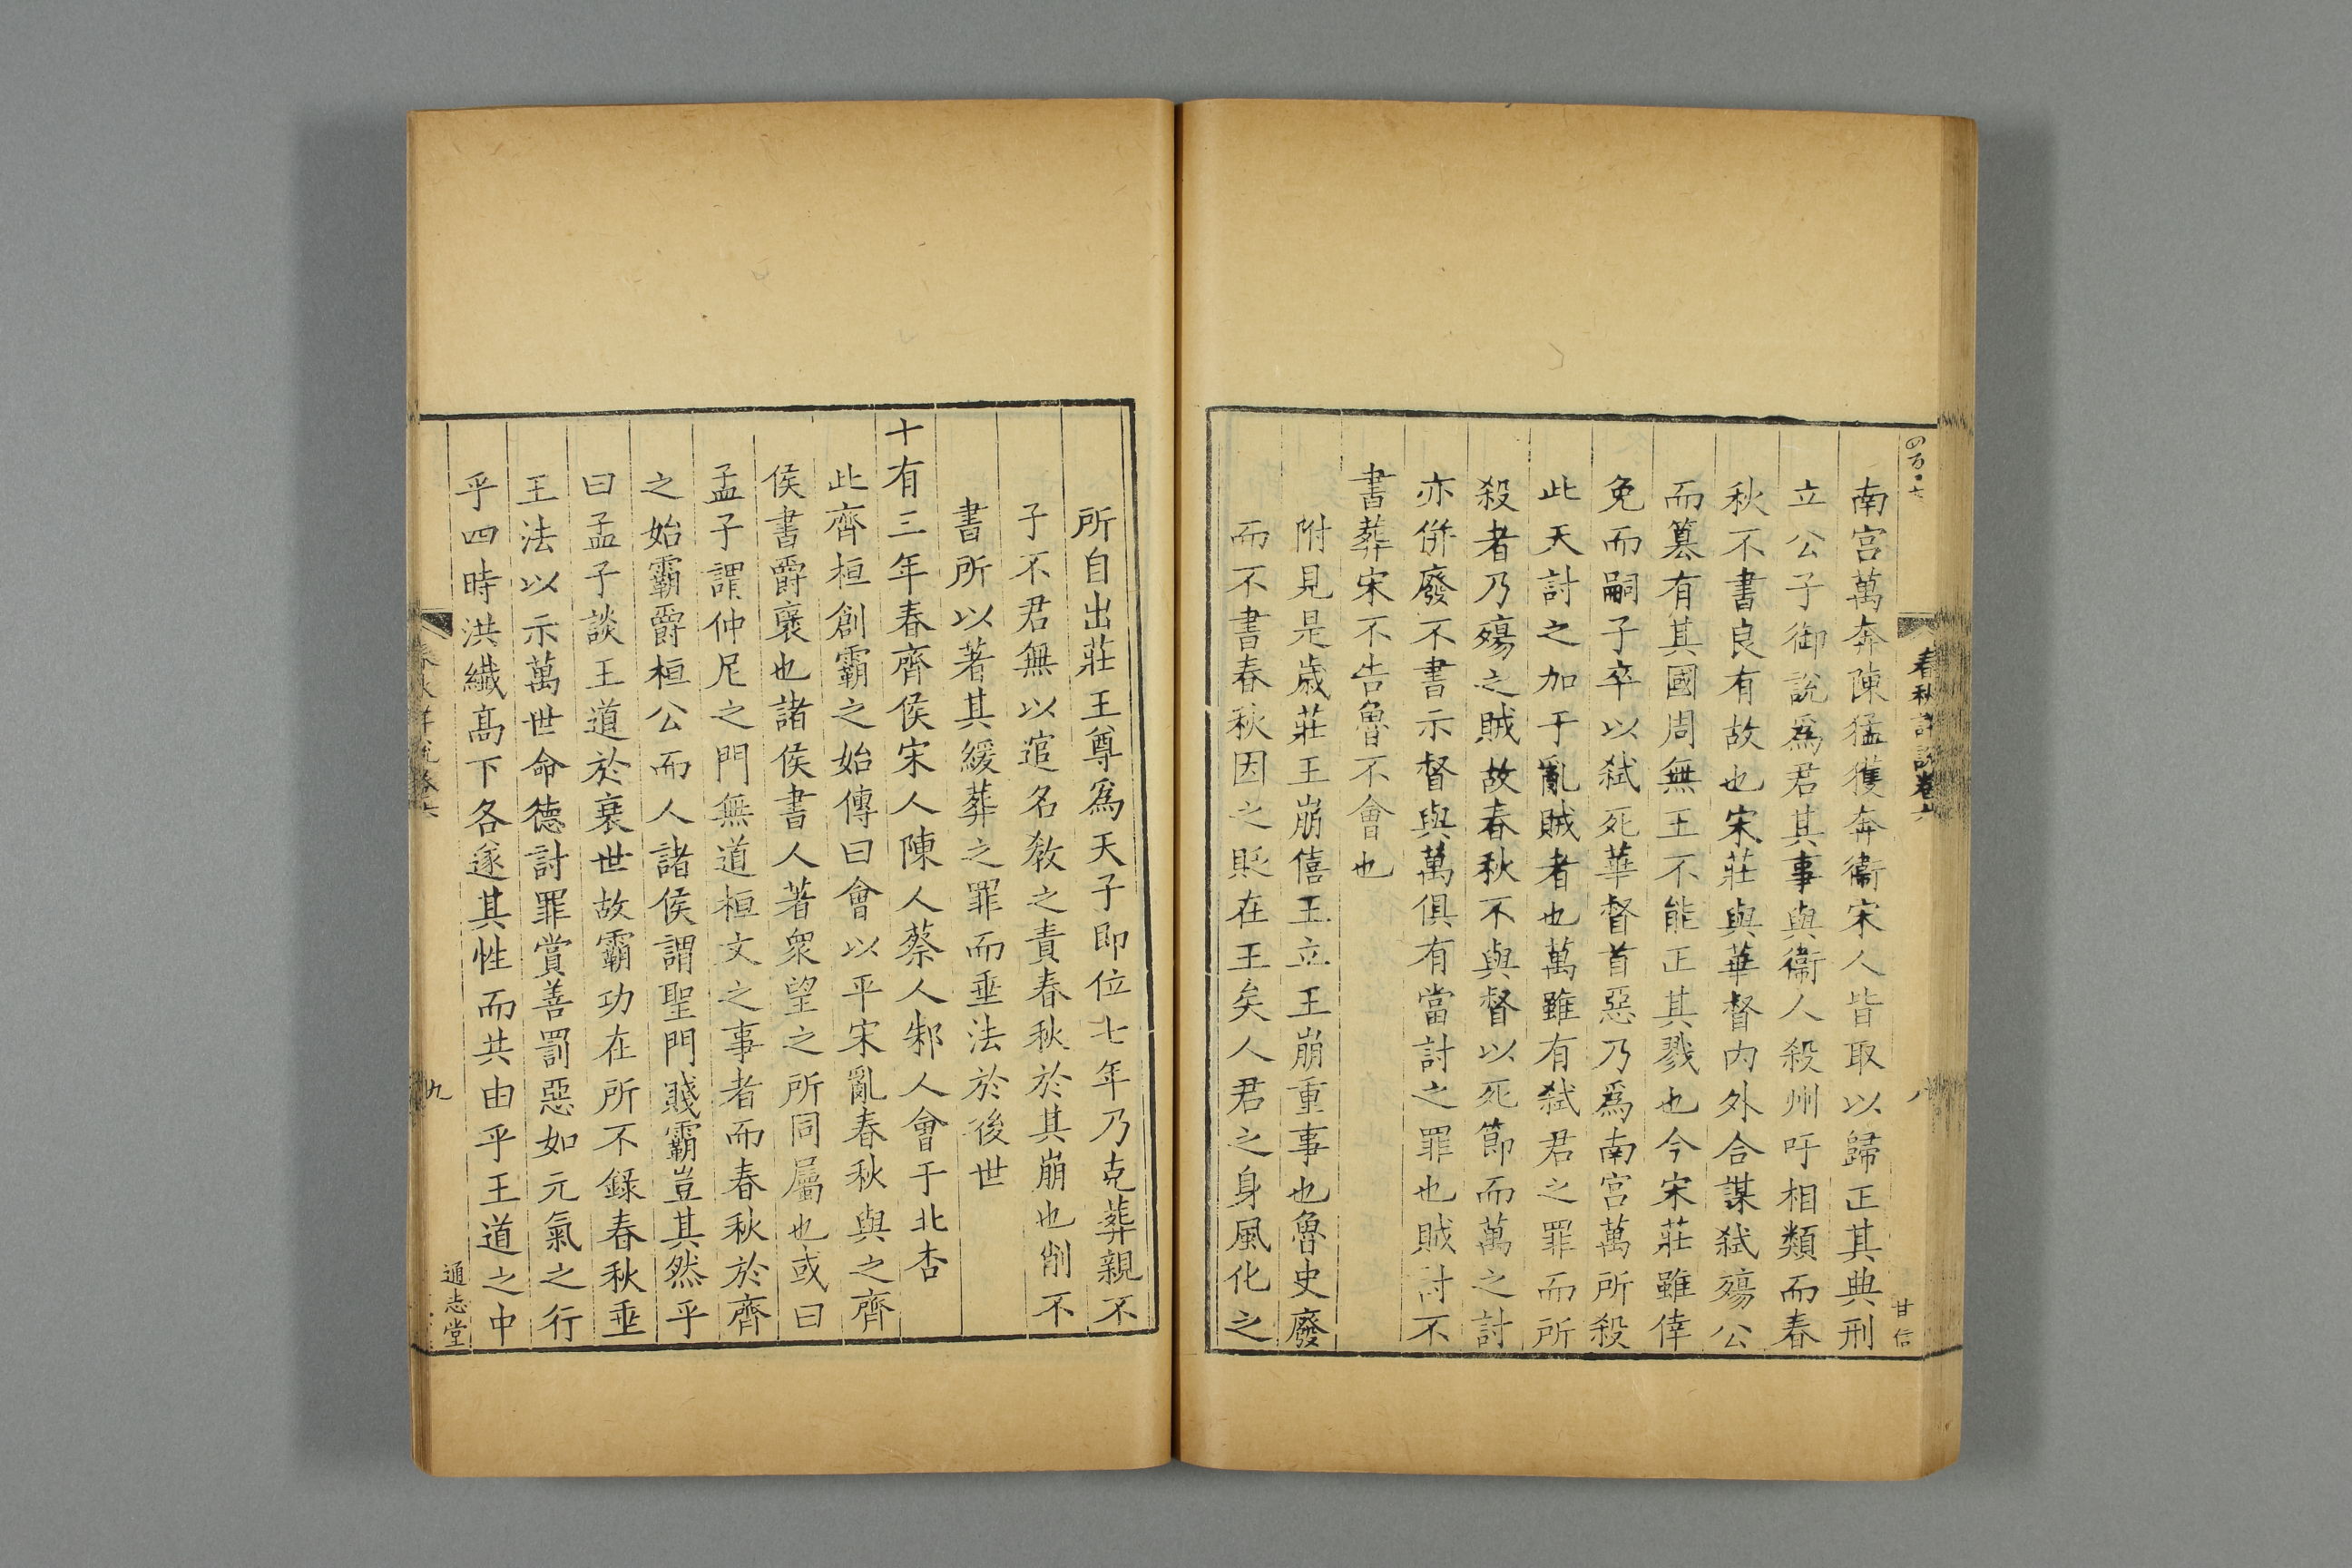 春秋詳說卷六
八
甘信
南宮萬奔陳猛獲奔衞宋人皆取以歸正其典刑
立公子御說爲君其事與衞人殺州吁相類而春
秋不書良有故也宋莊與華督內外合謀弑殤公
而簒有其國周無王不能正其戮也今宋莊雖倖
免而嗣子卒以弑死華督首惡乃爲南宮萬所殺
此天討之加于亂賊者也萬雖有弑君之罪而所
殺者乃殤之賊故春秋不與督以死節而萬之討
亦併廢不書示督與萬俱有當討之罪也賊討不
書葬宋不告魯不會也
附見是歲莊王崩僖王立王崩重事也魯史廢
而不書春秋因之貶在王矣人君之身風化之
所自出莊王尊爲天子即位七年乃克葬親不
子不君無以逭名敎之責春秋於其崩也削不
書所以著其緩葬之罪而垂法於後世
十有三年春齊侯宋人陳人蔡人邾人會于北杏
此齊桓創霸之始傳曰會以平宋亂春秋與之齊
侯書爵褒也諸侯書人著衆望之所同屬也或曰
孟子謂仲尼之門無道桓文之事者而春秋於齊
之始霸爵桓公而人諸侯謂聖門賤霸豈其然乎
曰孟子談王道於衰世故霸功在所不錄春秋垂
王法以示萬世命德討罪賞善罰惡如元氣之行
乎四時洪纖高下各遂其性而共由乎王道之中
春秋詳說卷六
九
通志堂